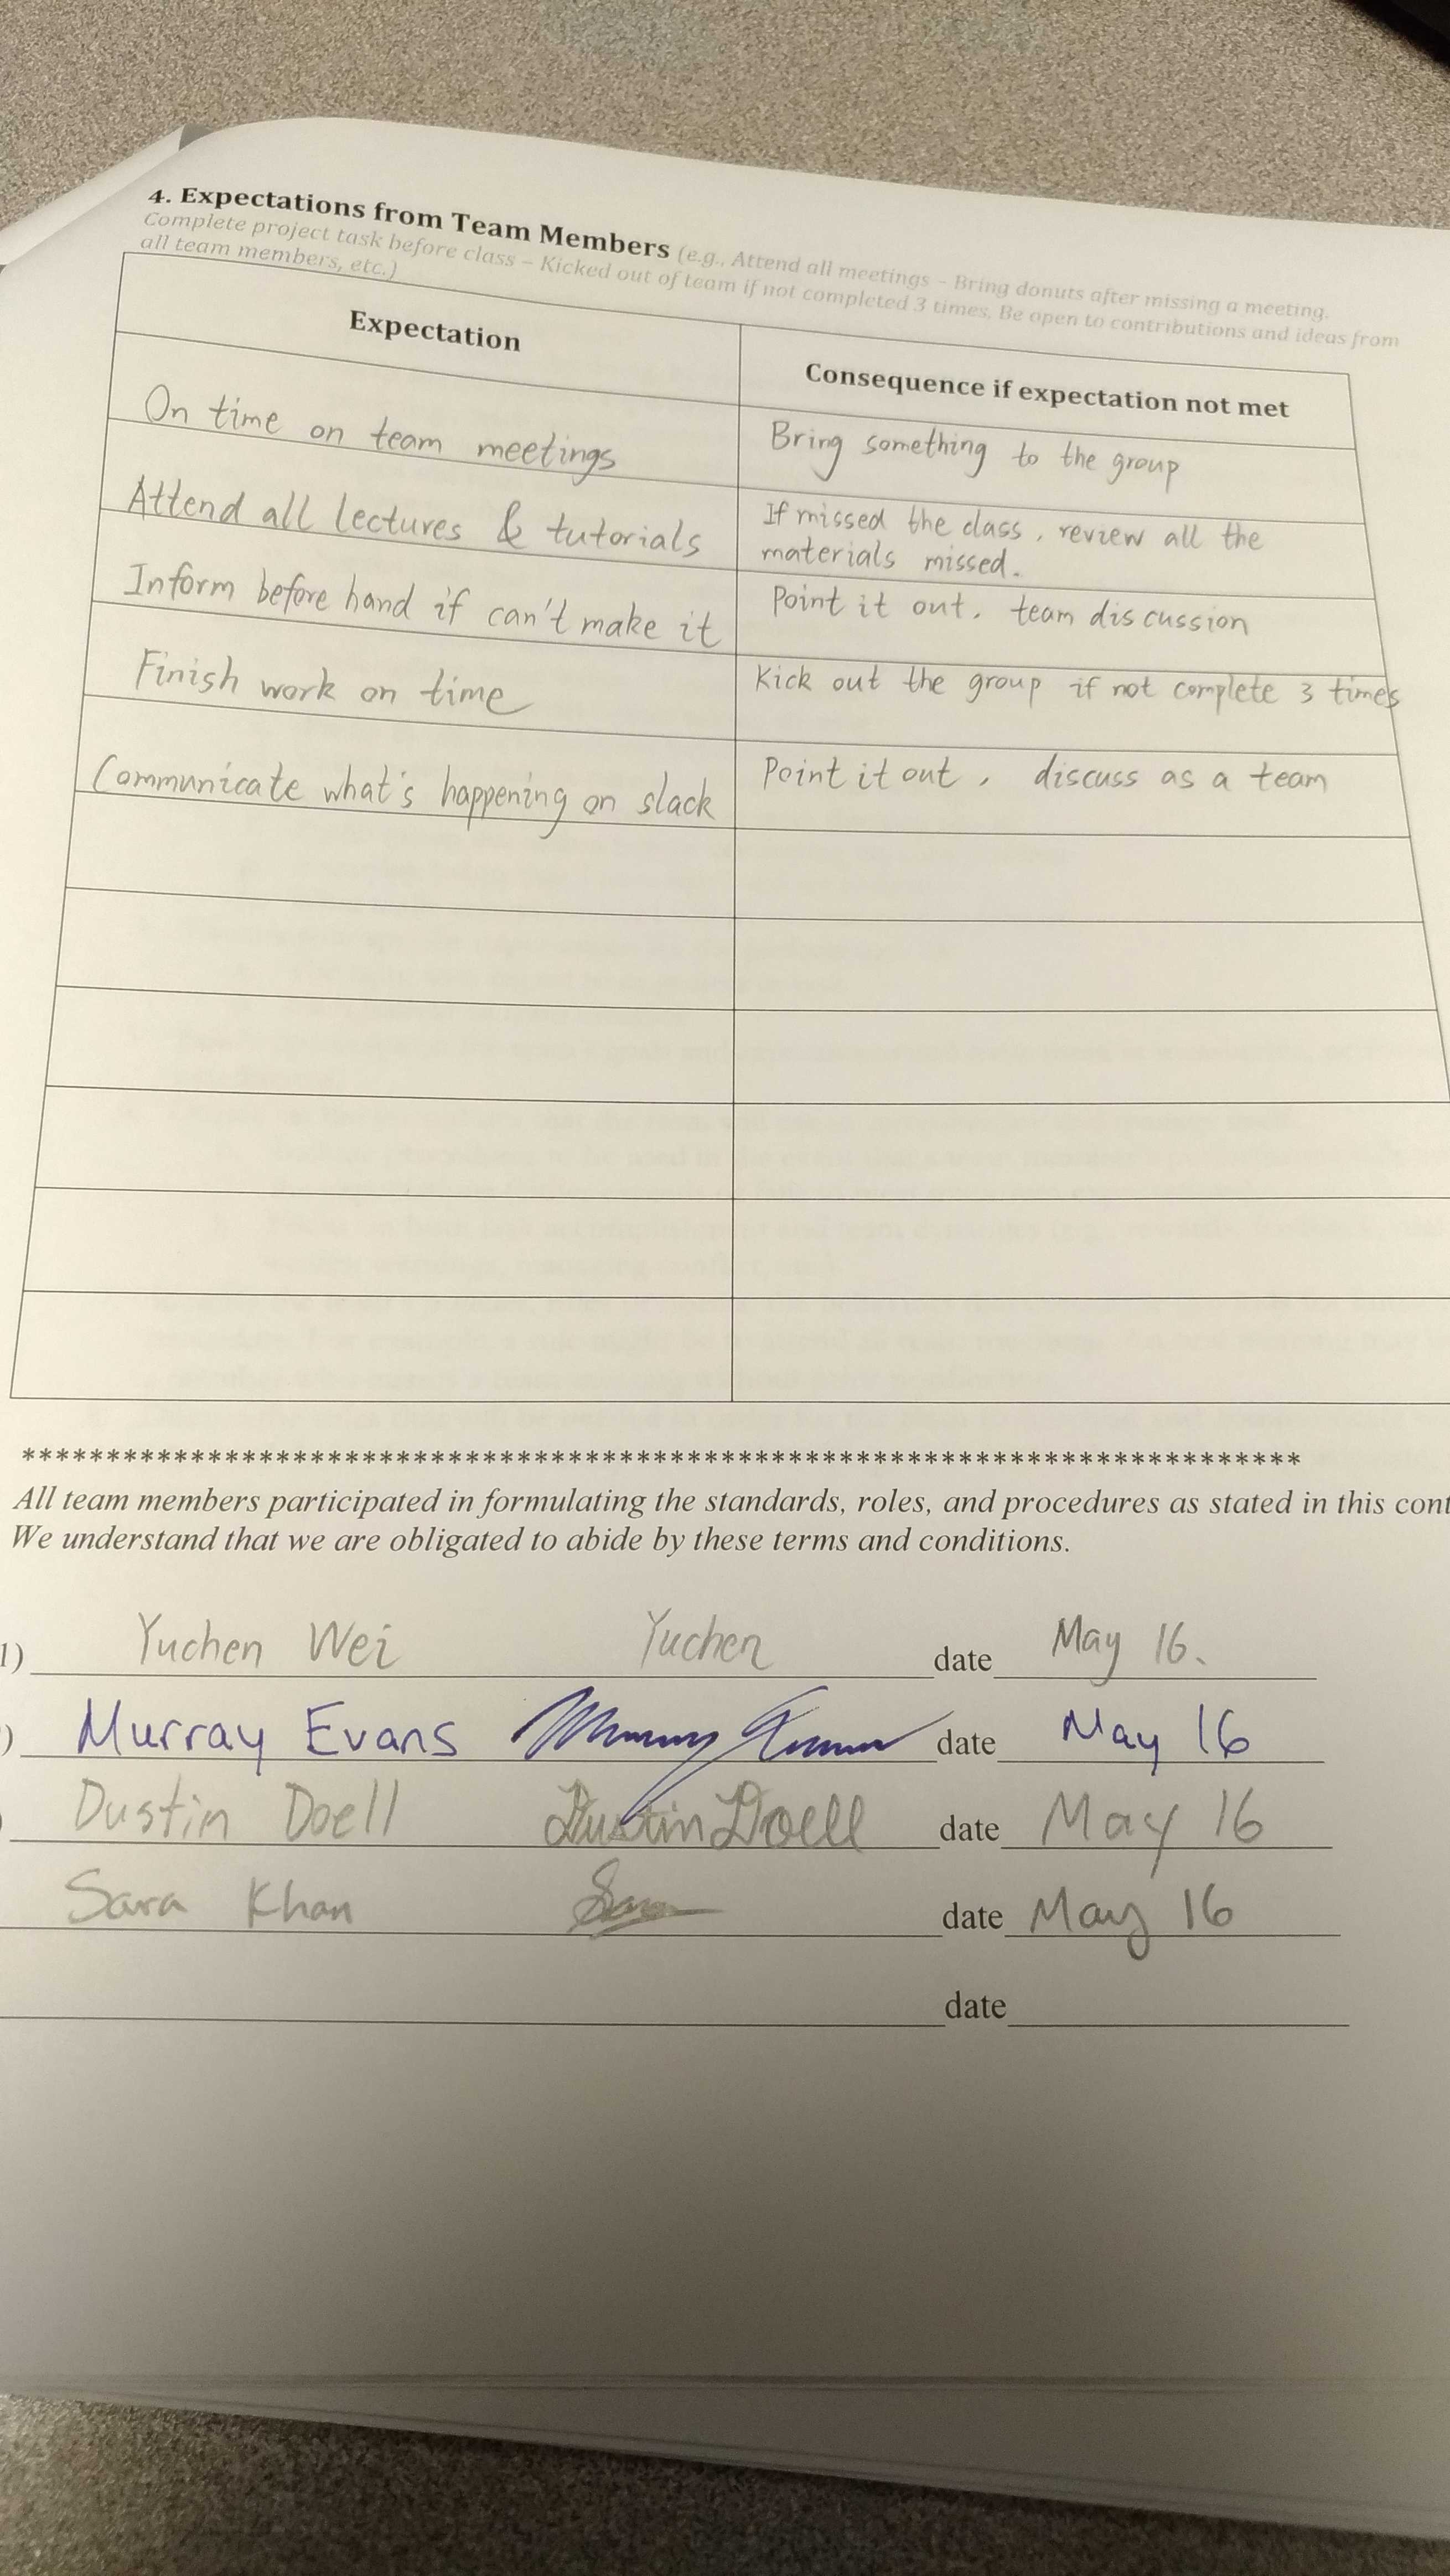 4. Expectations from Team Members (e.g., Attend all meetings – Bring donuts after missing a meeting.
Complete project task before class – Kicked out of team if not completed 3 times, Be open to contributions and ideas from
all team members, etc.)
Expectation
Consequence if expectation not met
On time on team meetings
Bring something to the group
Attend all lectures & tutorials
If missed the class, review all the
materials missed.
Inform before hand if can't make it
Point it out, team discussion
Finish work on time
Kick out the group if not complete 3 times
Communicate what's happening on slack
Point it out, discuss as a team
******************************************************************************************
All team members participated in formulating the standards, roles, and procedures as stated in this cont
We understand that we are obligated to abide by these terms and conditions.
1) Yuchen Wei Yuchen date May 16.
) Murray Evans Murray Evans date May 16
Dustin Doell Dustin Doell date May 16
Sara Khan date May 16
date